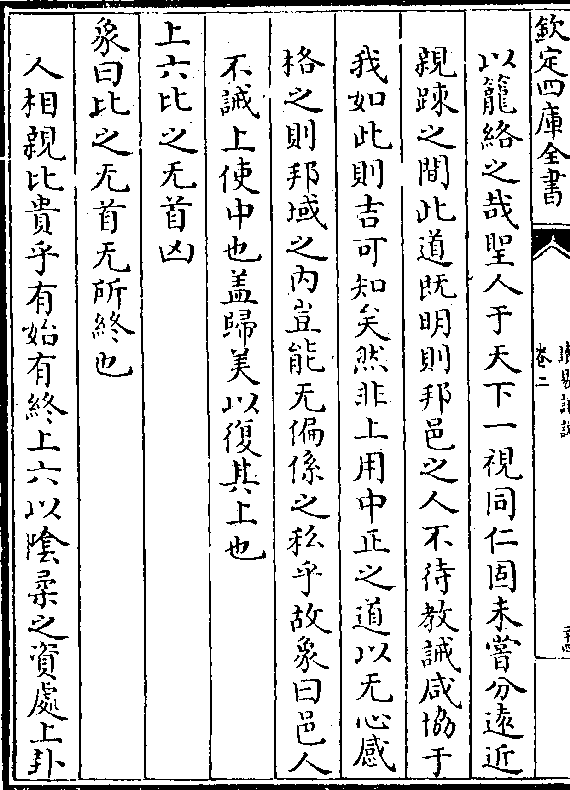 欽定四庫全書
卷二
以籠絡之哉聖人于天下一視同仁固未嘗分遠近
親踈之間此道既明則邦邑之人不待教誡咸協于
我如此則吉可知矣然非上用中正之道以无心感
格之則邦域之內豈能无偏係之私乎故象曰邑人
不誡上使中也盖歸美以復其上也
上六比之无首凶
象曰比之无首无所終也
人相親比貴乎有始有終上六以陰柔之資處上卦